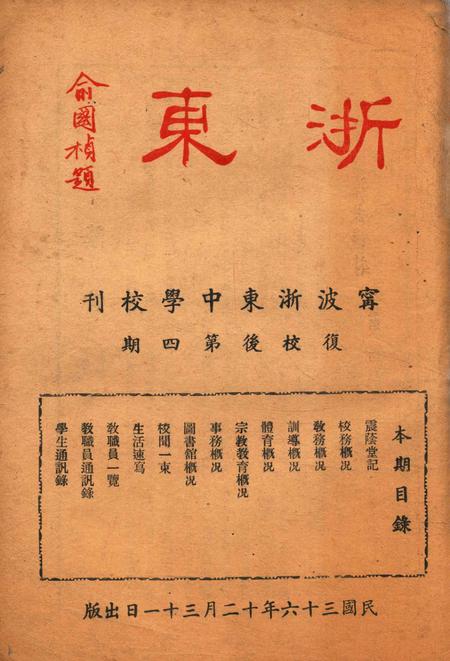 浙東
俞國楨題
寗波浙東中學校刊
復校後第四期
本期目錄
震蔭堂記
校務概况
敎務概况
訓導概况
體育概况
宗敎敎育概况
事務概况
圖書館概况
校聞一束
生活速寫
敎職員一覽
敎職員通訊錄
學生通訊錄
民國三十六年十二月三十一日出版